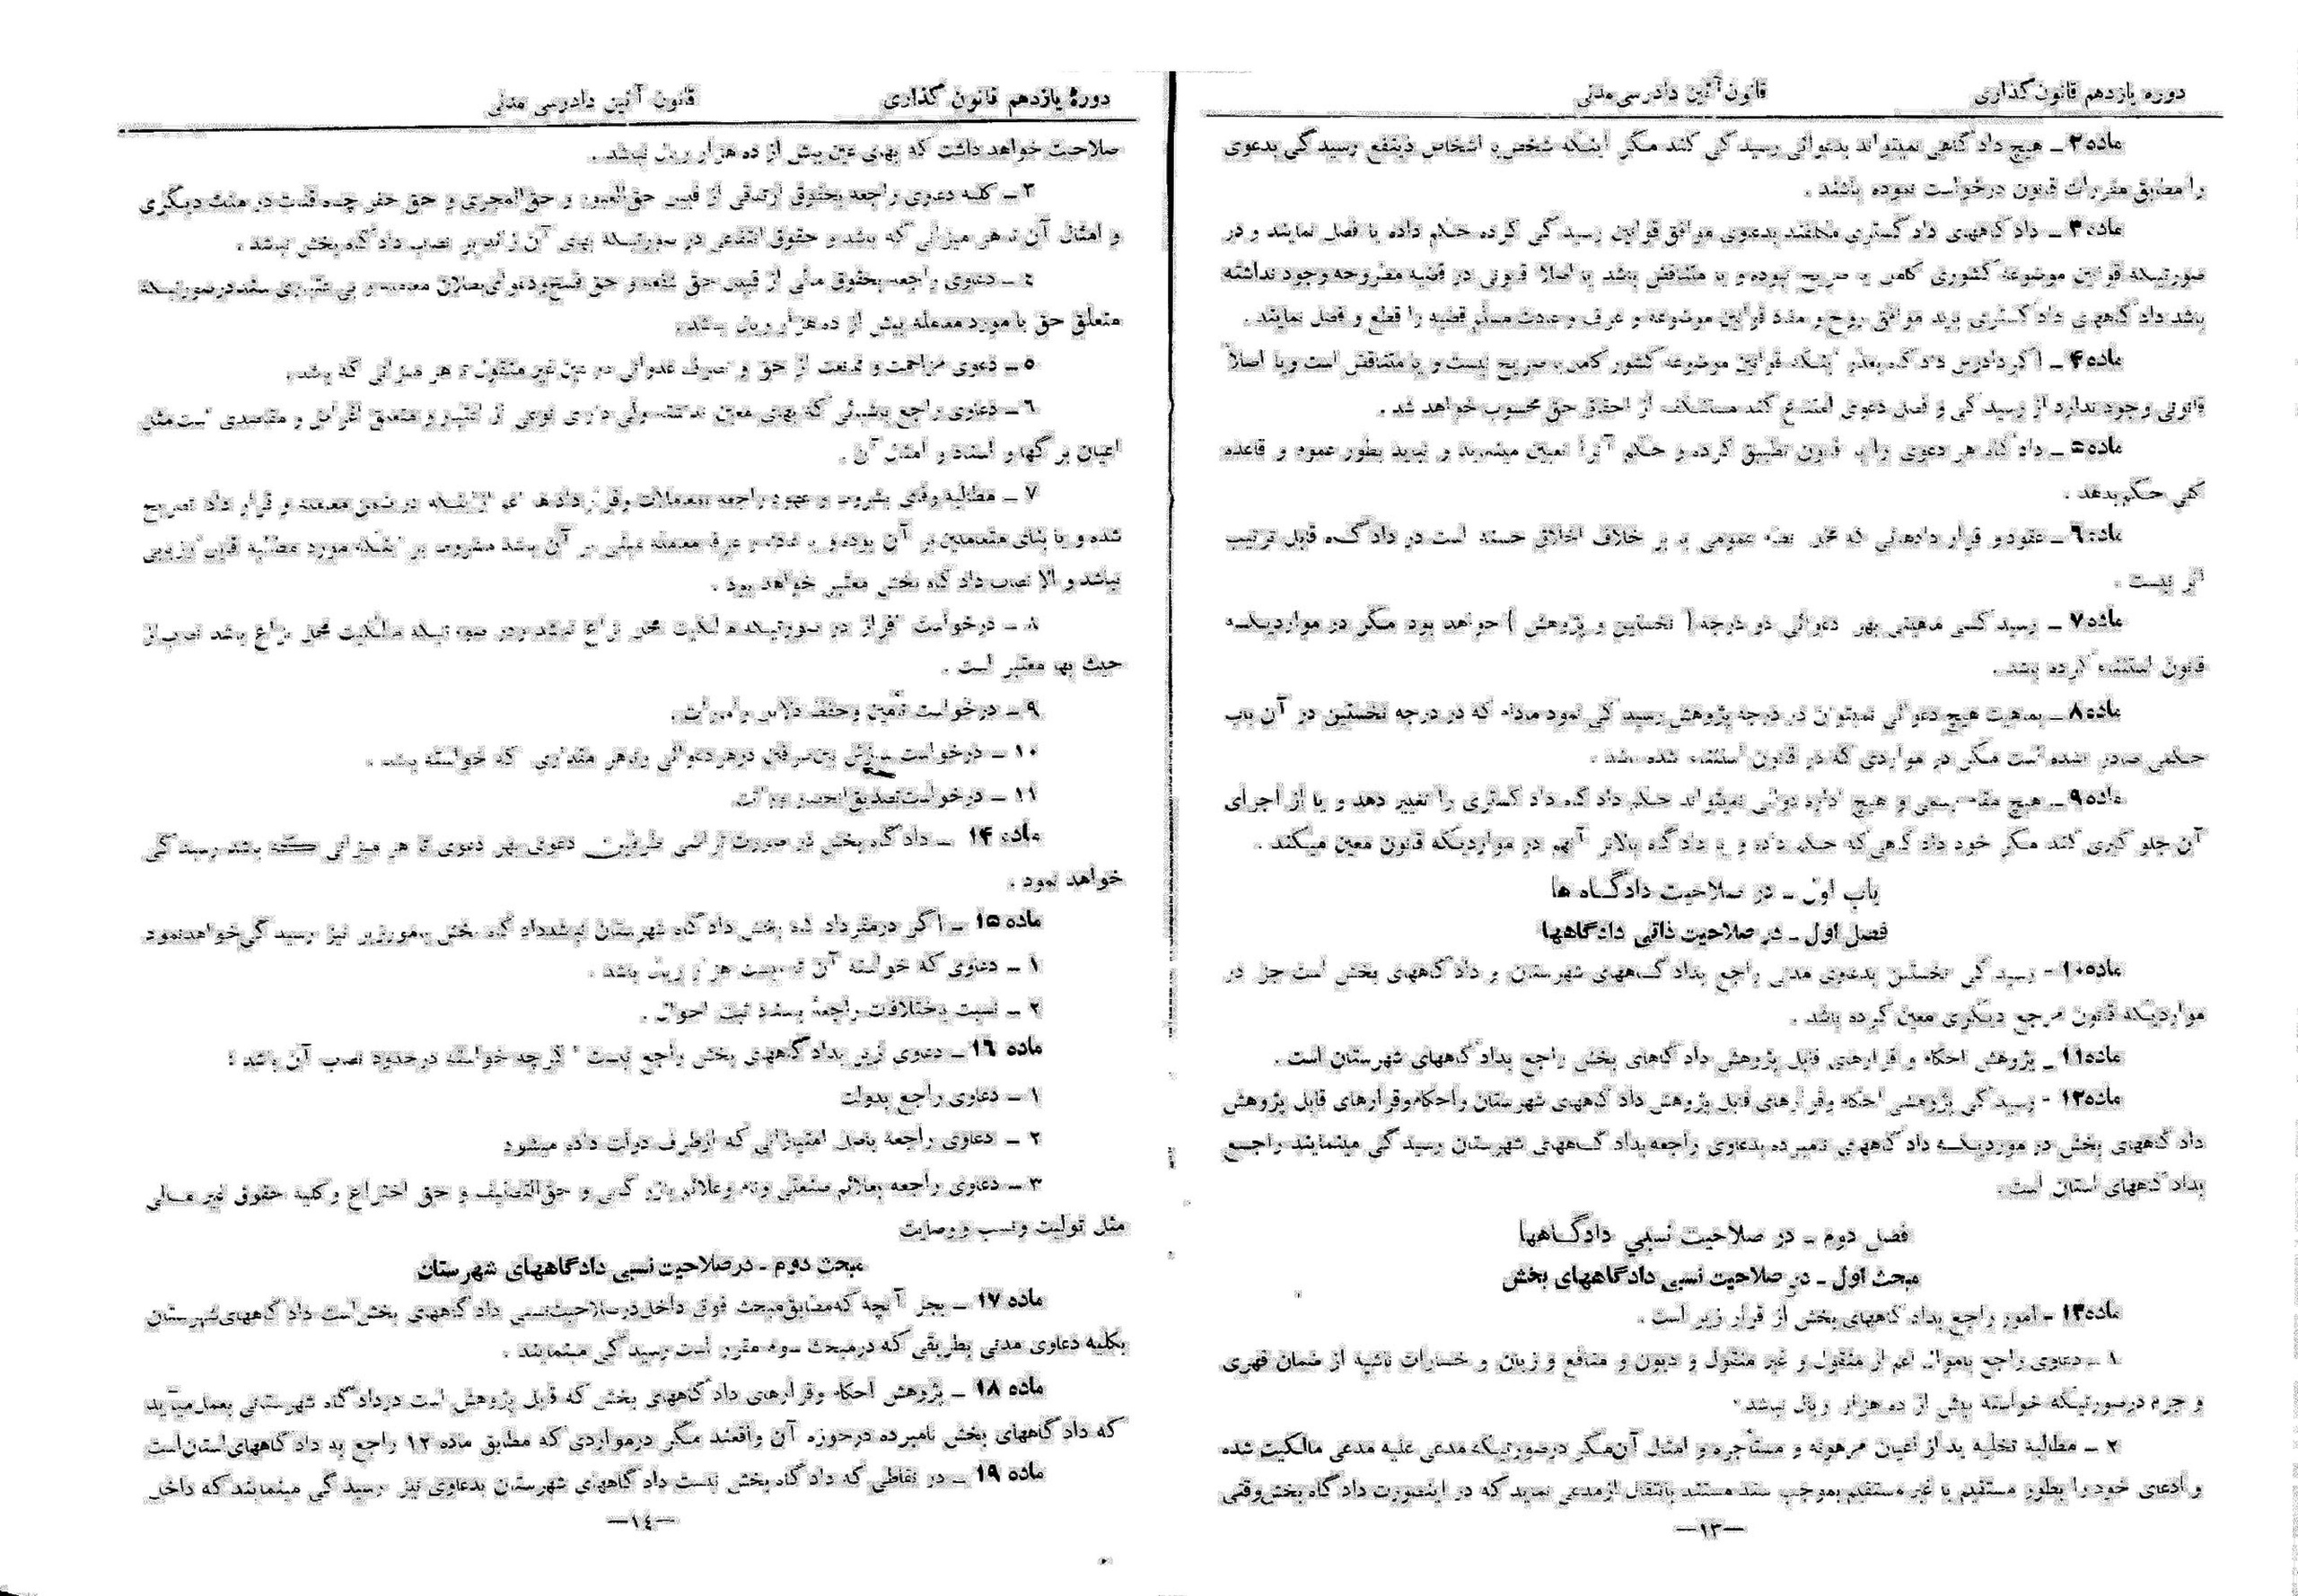 دوره یازدهم قانون‌گذاری
قانون آئین دادرسی مدنی
ماده ۲ ـ هیچ دادگاهی نمیتواند بدعوائی رسیدگی کند مگر اینکه شخص یا اشخاص ذینفع رسیدگی بدعوی
را مطابق مقررات قانون درخواست نموده باشند .
ماده ۳ ـ دادگاههای دادگستری مکلفند بدعاوی موافق قوانین رسیدگی کرده حکم داده یا فصل نمایند و در
صورتیکه قوانین موضوعه کشوری کامل یا صریح نبوده و یا متناقض باشد یا اصلا قانونی در قضیه مطروحه وجود نداشته
باشد دادگاههای دادگستری باید موافق روح و مفاد قوانین موضوعه و عرف و عادت مسلم قضیه را قطع و فصل نمایند .
ماده ۴ ـ اگر دادرس دادگاه بعذر اینکه قوانین موضوعه کشور کامل یا صریح نیست و یا متناقض است و یا اصلاً
قانونی وجود ندارد از رسیدگی و فصل دعوی امتناع کند مستنکف از احقاق حق محسوب خواهد شد .
ماده ۵ ـ دادگاه هر دعوی را با قانون تطبیق کرده و حکم آنرا تعیین مینماید و نباید بطور عموم و قاعده
کلی حکم بدهد .
ماده ۶ ـ عقود و قراردادهائی که مخل نظم عمومی یا بر خلاف اخلاق حسنه است در دادگاه قابل ترتیب
اثر نیست .
ماده ۷ ـ رسیدگی ماهیتی بهر دعوائی دو درجه ( نخستین و پژوهش ) خواهد بود مگر در مواردیکه
قانون استثناء کرده باشد .
ماده ۸ ـ بماهیت هیچ دعوائی نمیتوان در درجه پژوهش رسیدگی نمود مادام که در درجه نخستین در آن باب
حکمی صادر نشده است مگر در مواردی که در قانون استثناء شده باشد .
ماده ۹ ـ هیچ مقام رسمی و هیچ اداره دولتی نمیتواند حکم دادگاه دادگستری را تغییر دهد و یا از اجرای
آن جلوگیری کند مگر خود دادگاهی که حکم داده و یا دادگاه بالاتر آنهم در مواردیکه قانون معین میکند .
باب اول ـ در صلاحیت دادگاه ها
فصل اول ـ در صلاحیت ذاتی دادگاهها
ماده ۱۰ - رسیدگی نخستین بدعاوی مدنی راجع بدادگاههای شهرستان و دادگاههای بخش است جز در
مواردیکه قانون مرجع دیگری معین کرده باشد .
ماده ۱۱ ـ پژوهش احکام و قرارهای قابل پژوهش دادگاههای بخش راجع بدادگاههای شهرستان است .
ماده ۱۲ - رسیدگی پژوهشی احکام و قرارهای قابل پژوهش دادگاههای شهرستان و احکام و قرارهای قابل پژوهش
دادگاههای بخش در موردیکه دادگاههای نامبرده بدعاوی راجعه بدادگاههای شهرستان رسیدگی مینمایند راجع
بدادگاههای استان است .
فصل دوم ـ در صلاحیت نسبی دادگاهها
مبحث اول ـ در صلاحیت نسبی دادگاههای بخش
ماده ۱۳ - امور راجع بدادگاههای بخش از قرار زیر است .
۱ ـ دعاوی راجع باموال اعم از منقول و غیر منقول و دیون و منافع و زیان و خسارات ناشیه از ضمان قهری
و جرم درصورتیکه خواسته بیش از ده هزار ریال نباشد .
۲ ـ مطالبه تخلیه ید از اعیان مرهونه و مستأجره و امثال آن مگر درصورتیکه مدعی علیه مدعی مالکیت شده
و ادعای خود را بطور مستقیم یا غیر مستقیم بموجب سند مستند بانتقال از مدعی نماید که در اینصورت دادگاه بخش وقتی
—۱۳—
دورهٔ یازدهم قانون گذاری
قانون آئین دادرسی مدنی
صلاحیت خواهد داشت که بهای عین بیش از ده هزار ریال نباشد .
۳ ـ کلیه دعاوی راجعه بحقوق ارتفاقی از قبیل حق‌العبور و حق‌المجری و حق حفر چاه قنات در ملک دیگری
و امثال آن تا هر میزانی که باشد و حقوق انتفاعی در صورتیکه بهای آن زائد بر نصاب دادگاه بخش نباشد .
٤ ـ دعاوی راجعه بحقوق مالی از قبیل حق شفعه و حق فسخ و دعوای بطلان معامله و بی اعتباری سند درصورتیکه
متعلق حق یا مورد معامله بیش از ده هزار ریال نباشد .
٥ ـ دعوی مزاحمت و ممانعت از حق و تصرف عدوانی در عین غیر منقول تا هر میزانی که باشد .
٦ ـ دعاوی راجع باشیائی که بهای معین نداشته ولی دارای نوعی از اعتبار و متعلق اغراض و مقاصدی است مثل
اعیان برگها و اسناد و امثال آن .
۷ ـ مطالبه وفای بشروط و عهود راجعه بمعاملات و قراردادها اعم از اینکه در ضمن معامله و قرارداد تصریح
شده و یا بنای متعاملین بر آن بوده و یا عادتا و عرفا معامله مبنی بر آن باشد مشروط بر اینکه مورد مطالبه قابل ارزیابی
نباشد و الا نصاب دادگاه بخش معتبر خواهد بود .
۸ ـ درخواست افراز در صورتیکه مالکیت محل نزاع نباشد و در صورتیکه مالکیت محل نزاع باشد نصاب از
حیث بها معتبر است .
۹ ـ درخواست تأمین و حفظ دلائل و امارات .
۱۰ ـ درخواست سازش بین طرفین در هر دعوائی و تا هر مقداری که خواسته باشد .
۱۱ ـ درخواست تصدیق انحصار وراثت
ماده ۱۴ ـ دادگاه بخش در صورت تراضی طرفین دعوی بهر دعوی تا هر میزانی که باشد رسیدگی
خواهد نمود .
ماده ۱۵ ـ اگر در مقر دادگاه بخش دادگاه شهرستان نباشد دادگاه بخش بامور زیر نیز رسیدگی خواهد نمود
۱ ـ دعاوی که خواسته آن تا بیست هزار ریال باشد .
۲ ـ نسبت باختلافات راجعه باسناد ثبت احوال .
ماده ۱۶ ـ دعاوی زیر بدادگاههای بخش راجع نیست اگرچه خواسته در حدود نصاب آن باشد :
۱ ـ دعاوی راجع بدولت
۲ ـ دعاوی راجعه باصل امتیازاتی که از طرف دولت داده میشود
۳ ـ دعاوی راجعه بعلائم صنعتی و نام و علائم بازرگانی و حق‌التصنیف و حق اختراع و کلیه حقوق غیر مالی
مثل تولیت و نسب و وصایت
مبحث دوم ـ در صلاحیت نسبی دادگاههای شهرستان
ماده ۱۷ ـ بجز آنچه که مطابق مبحث فوق داخل در صلاحیت نسبی دادگاههای بخش است دادگاههای شهرستان
بکلیه دعاوی مدنی بطریقی که در مبحث سوم مقرر است رسیدگی مینمایند .
ماده ۱۸ ـ پژوهش احکام و قرارهای دادگاههای بخش که قابل پژوهش است در دادگاه شهرستانی بعمل میآید
که دادگاههای بخش نامبرده در حوزه آن واقعند مگر در مواردی که مطابق ماده ۱۲ راجع به دادگاههای استان است
ماده ۱۹ ـ در نقاطی که دادگاه بخش نیست دادگاههای شهرستان بدعاوی نیز رسیدگی مینمایند که داخل
—١٤—